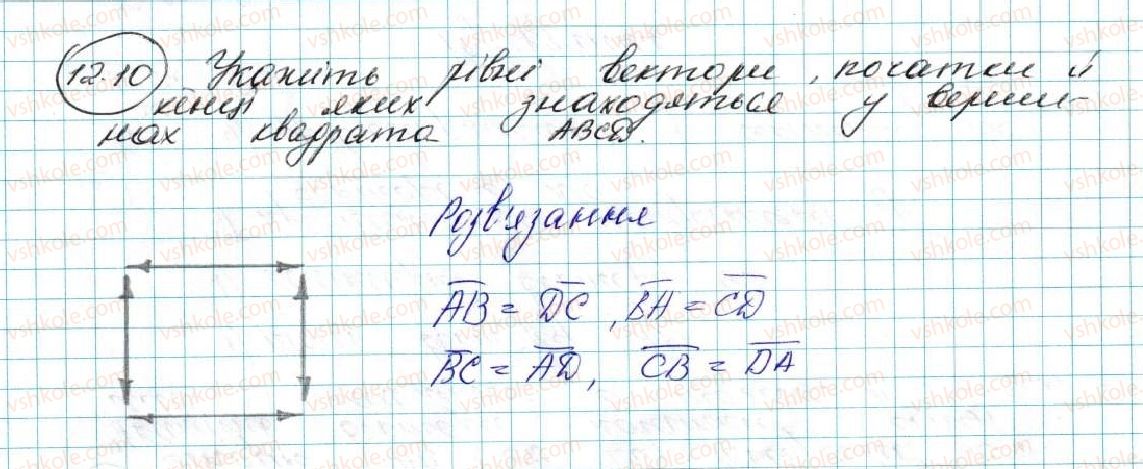 12.10 Укажіть рівні вектори, початки й
кінці яких знаходяться у верши-
нах квадрата ABCD.
Розв'язання
A̅B̅ = D̅C̅, B̅A̅ = C̅D̅
B̅C̅ = A̅D̅, C̅B̅ = D̅A̅